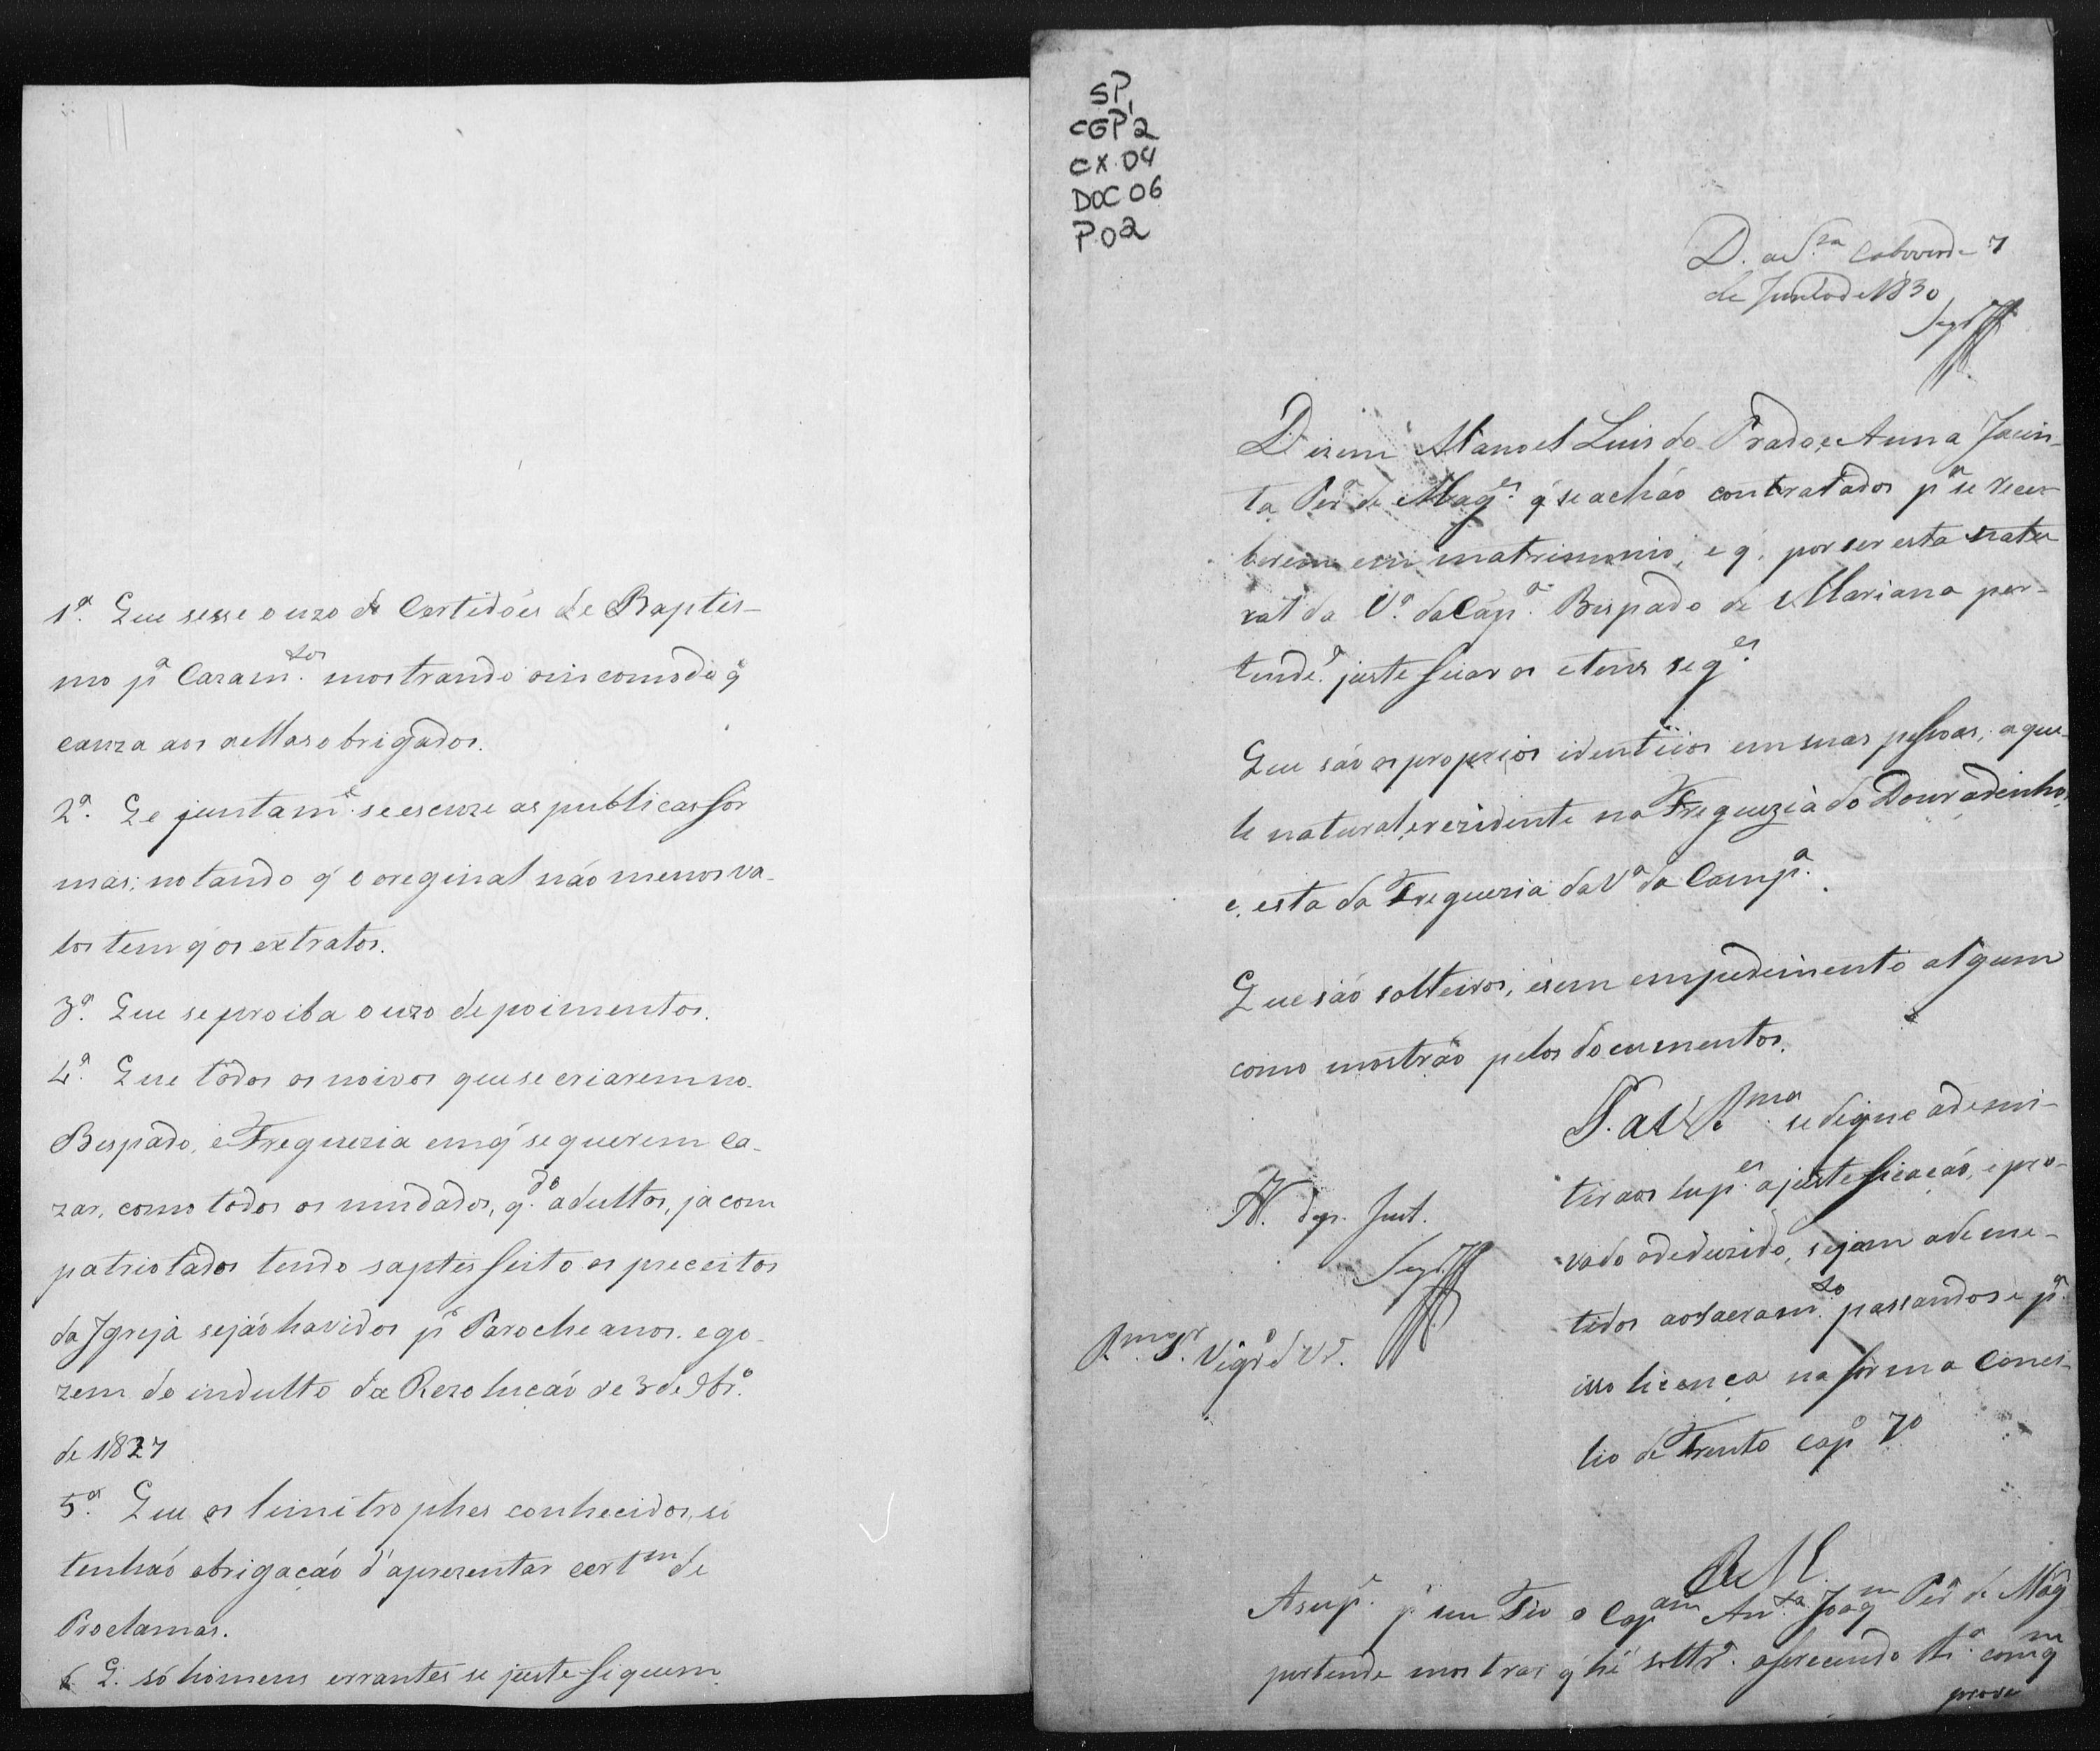 1ª. Que sesse o uzo de Certidões de Baptis-
mo pª Cazam.tos mostrando o incomodo q̃
cauza aos a ellas obrigados.
2ª. Qe juntam.e se escuze as publicas for
mas; notando q̃ o oreginal não menos va-
los tem q̃ os extratos.
3ª. Que se proiba o uzo de poimentos.
4ª. Que todos os noivos que se criarem no
Bispado, e Freguezia em q̃ se querem ca-
zar, como todos os mudados, q.do adultos, ja com
patriotados tendo saptesfeito os preceitos
da Igreja sejão havidos pr Parocheanos. e go-
zem do indulto da Rezolução de 3 de 9br.o
de 1827
5ª. Que os limitrophes conhecidos, só
tenhão obrigação d'aprezentar cert.m de
Proclamas.
6 Q. só homens errantes se justefiquem.
SP,
CGP2
CX.04
DOC 06
P.02
D. a S.ra Caboverde 7
de Junho de 1830
Dizem Manoel Luis do Prado, e Anna Jacin-
ta Perª de Mag.es q̃ se achão contratados pª se rece-
berem em matrimonio, e q. por ser esta natu
ral da Vª. da Camp.ª Bispado de Mariana per-
tende. justeficar os etens seg.es
Que são os proprios identicos em suas pessoas, aque-
le natural, e rezidente na Freguezia do Douradinho,
e, esta da Freguezia da Vª da Camp.ª.
Que são solteiros, e sem empedimento algum
como mostrão pelos documentos.
P. a V. S.ma se digne ademi-
tir aos sup.es a justeficação, e pro-
vado o deduzido, sejam ademe-
tidos ao Sacram.to passandose pª
isso licença na forma Conci-
lio de Trento cap.o 7º
A. dep. Just.
Il.mo Sr. Vigrº d Vr.
E R M.
A sup.e pr seu Tio o Cap.am An.to Joaq.m Per.ª de Mag
pertende mostrar q̃ hé soltr.ª oferecendo th.ª com q.m
prove